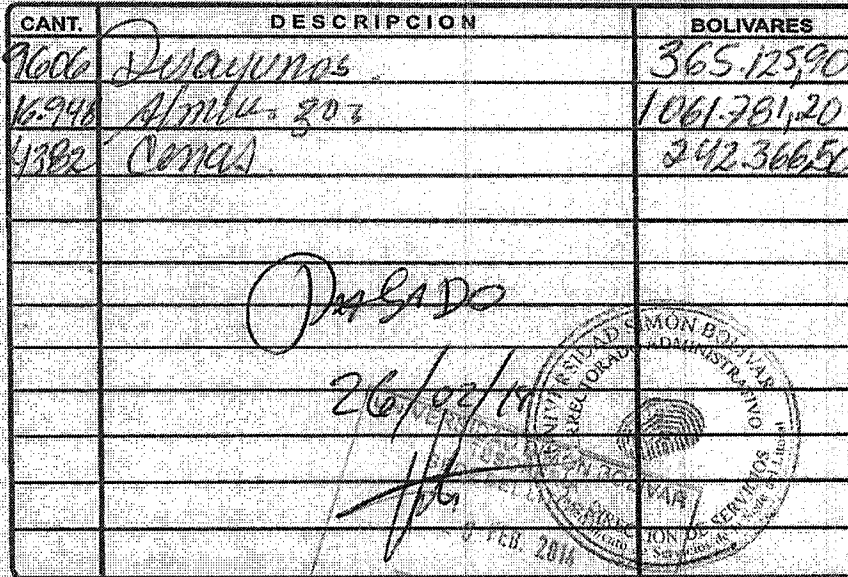 CANT. DESCRIPCION BOLIVARES
9606 Desayunos 365.125,90
16.948 Almuerzos 1061.781,20
4382 Cenas 242.366,50
26/02/14
UNIVERSIDAD SIMÓN BOLIVAR
VICERRECTORADO ADMINISTRATIVO
DIRECCION DE SERVICIOS
FEB. 2014